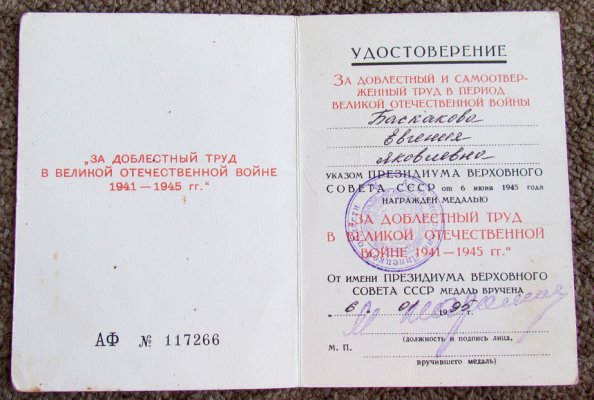 „ЗА ДОБЛЕСТНЫЙ ТРУД
В ВЕЛИКОЙ ОТЕЧЕСТВЕННОЙ ВОЙНЕ
1941—1945 гг.“
АФ № 117266
УДОСТОВЕРЕНИЕ
ЗА ДОБЛЕСТНЫЙ И САМООТВЕР-
ЖЕННЫЙ ТРУД В ПЕРИОД
ВЕЛИКОЙ ОТЕЧЕСТВЕННОЙ ВОЙНЫ
Баскакова
Евгения
Яковлевна
УКАЗОМ ПРЕЗИДИУМА ВЕРХОВНОГО
СОВЕТА СССР от 6 июня 1945 года
НАГРАЖДЕН МЕДАЛЬЮ
„ЗА ДОБЛЕСТНЫЙ ТРУД
В ВЕЛИКОЙ ОТЕЧЕСТВЕННОЙ
ВОЙНЕ 1941—1945 гг.“
От имени ПРЕЗИДИУМА ВЕРХОВНОГО
СОВЕТА СССР МЕДАЛЬ ВРУЧЕНА
"6" 01 1995 г.
(должность и подпись лица,
М. П.
вручившего медаль)